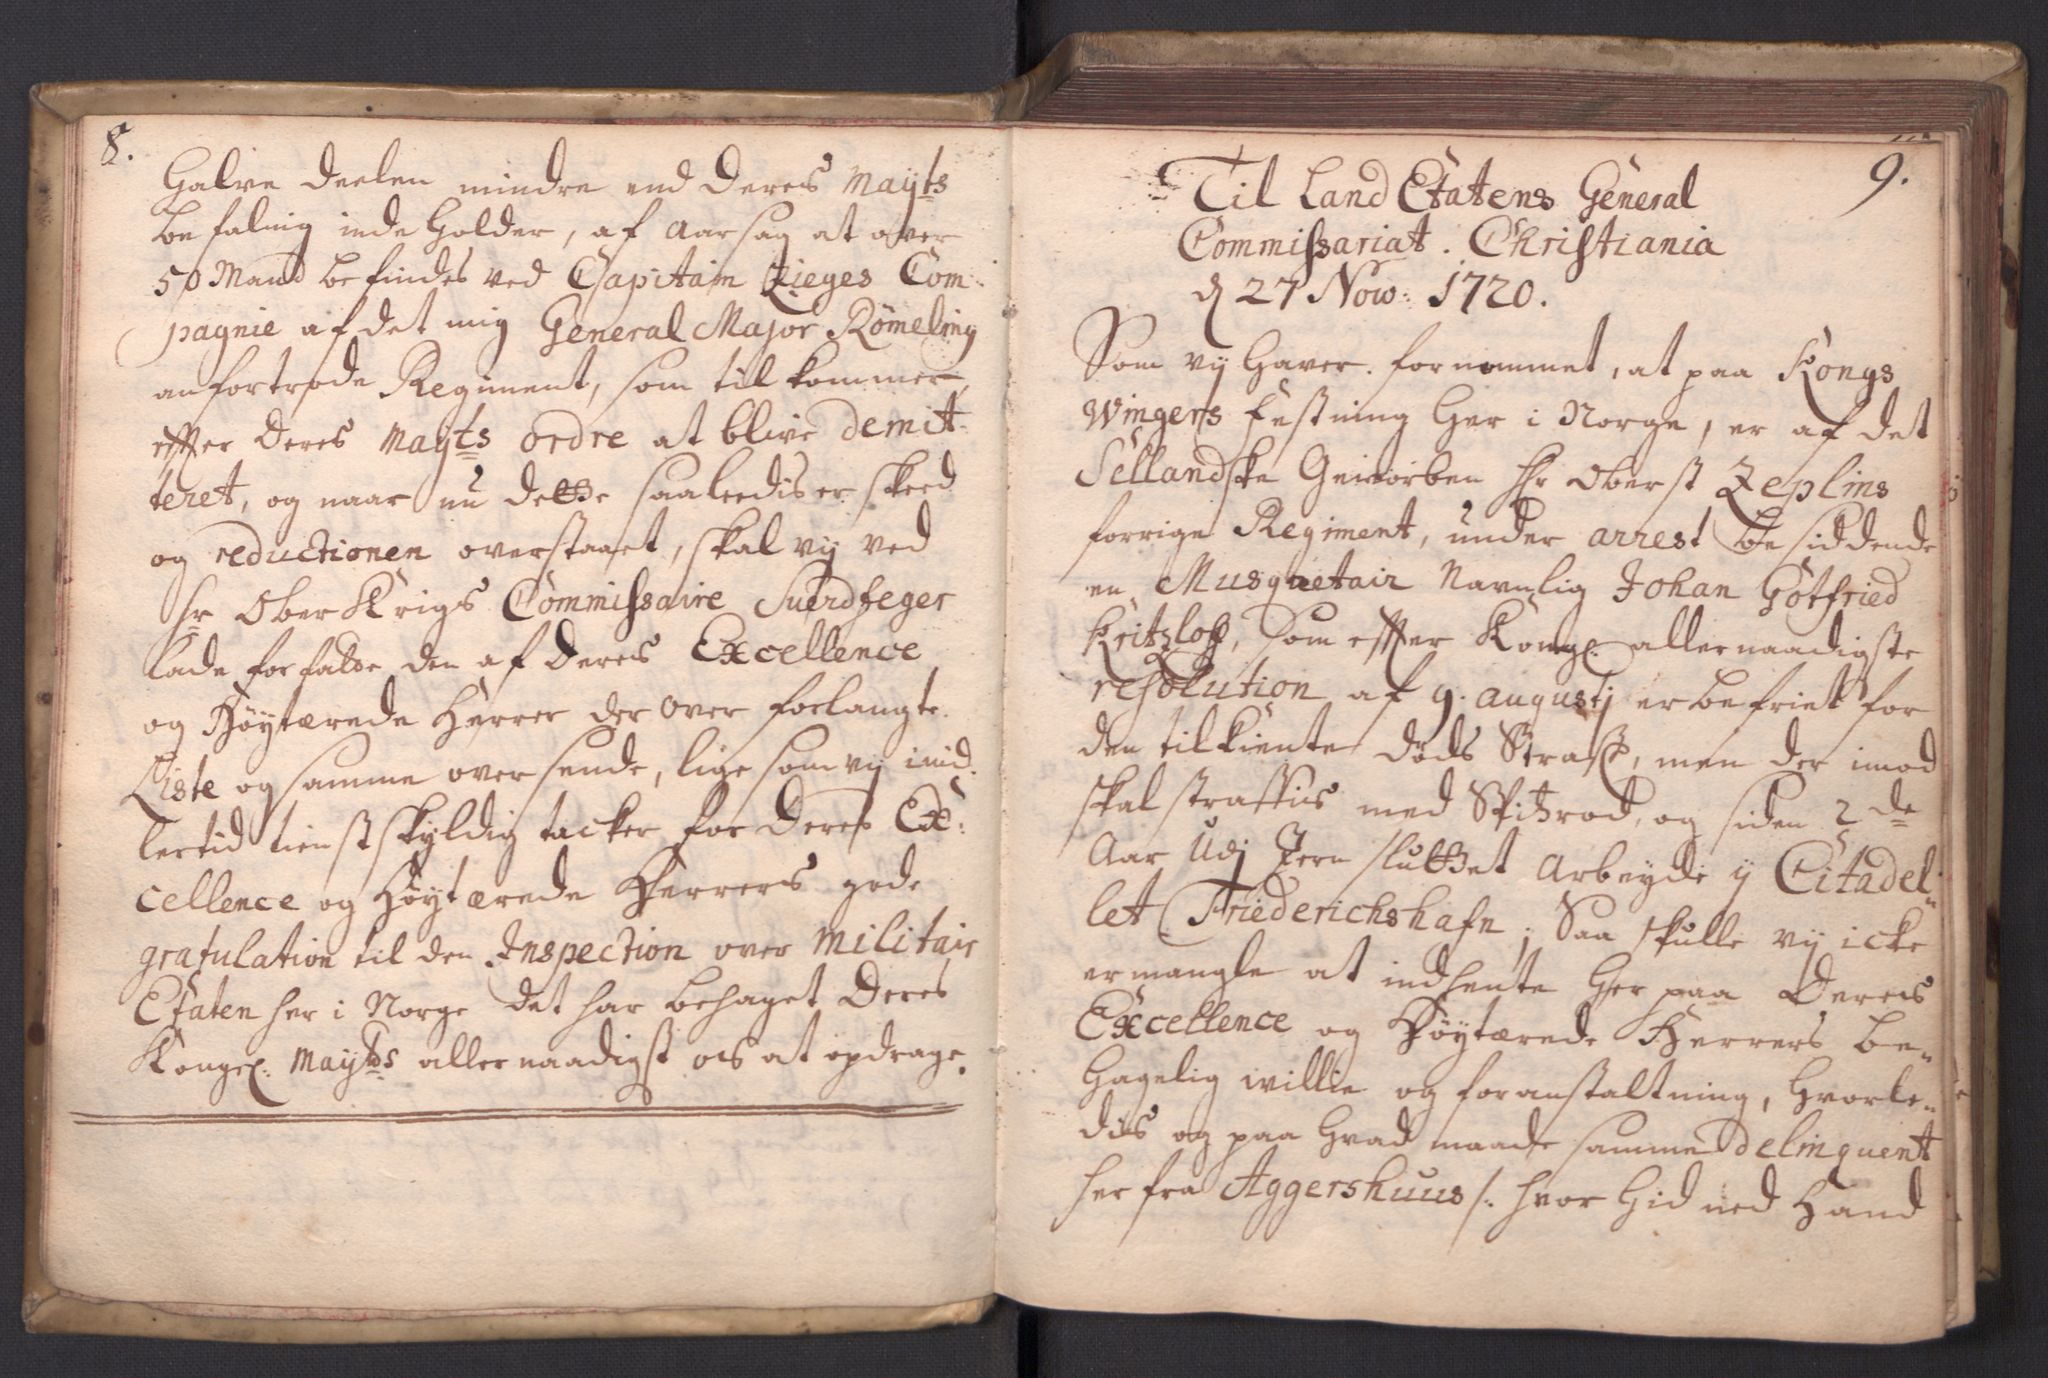 8.
halve deelen mindre end Deres Mayts
befaling inde holder, af Aarsag at over
50 Mand befindes ved Capitain Zieges Com-
pagnie af det mig General Major Römeling
anfortrode Regiment, som til kommer,
effter Deres Mayts ordre at blive demit-
teret, og naar nu dette saaleedis er skeed
og reductionen overstaaet, skal vij ved
Hr Ober Krigs Commissaire Suerdfeger
lade forfatte den af Deres Excellence
og Höytærede Herrer der over forlangte
Liste og samme over sende, lige som vij imid-
lertid tienstskyldig tacker for Deres Ex:
cellence og Höytærede Herrers gode
gratulation til den Inspection over Militair
Etaten her i Norge det har behaget Deres
Kongel: Mayts allernaadigst os at opdrage.
9.
Til Land Etatens General
Commissariat. Christiania
d 27 Nov: 1720.
Som vij haver fornommet, at paa Kongs
Wingers Festning her i Norge, er af det
Sellandske Geworben Hr Oberst Zeplins
forrige Regiment, under arrest besiddende
en Musquetair Navnlig Johan Götfried
som effter Kongel: allernaadigste
resolution af 9. Augustj er befriet for
den tilkiente Döds Straff, men der imod
skal straffis med Spitzrod, og siden 2de
Aar Udj Jern sluttet Arbeyde ij Citadel-
let Friederichshafn; Saa skulle vij icke
ermangle at indhente her paa Deres
Excellence og Höytærede Herrers be-
hagelig willie og foranstaltning, hvorle-
dis og paa hvad maade samme Delinquent
her fra Aggershuus /: hvor hid ned Hand